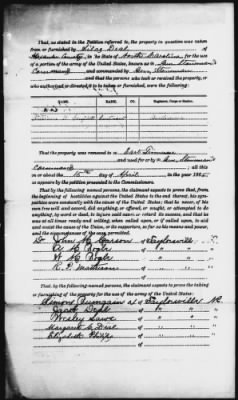 That, as stated in the Petition referred to, the property in question was taken
from or furnished by Silas Deal of
Alexander County, in the State of North Carolina, for the use
of a portion of the army of the United States, known as Gen Stoneman's
Command and commanded by Gen Stoneman
and that the persons who took or received the property, or who
authorized or directed it to be taken or furnished, were the following:
NAME. RANK. Regiment, Corps or Station.
that the property was removed to East Tennessee
and used for or by Gen Stoneman's
Command ; all this
on or about the 15th day of April in the year 1865,
as appears by the petition presented to the Commissioners.
That by the following named persons, the claimant expects to prove that, from
the beginning of hostilities against the United States to the end thereof, his sym-
pathies were constantly with the cause of the United States; that he never, of his
own free will and accord, did anything, or offered, or sought, or attempted to do
anything, by word or deed, to injure said cause or retard its success, and that he
was at all times ready and willing, when called upon, or if called upon, to aid
and assist the cause of the Union, or its supporters, so far as his means and power,
and the circumstances of the case, permitted.
Dr John M. Carson of Taylorsville
of " "
W. M. of " "
R. P. Matheson of " "
of
That by the following named persons, the claimant expects to prove the taking
or furnishing of the property for the use of the army of the United States:
of Taylorsville NC
Jacob Deal of " "
Wesley of " "
Margaret C. Deal of " "
Elizabeth of " "
of
That by the following named persons,